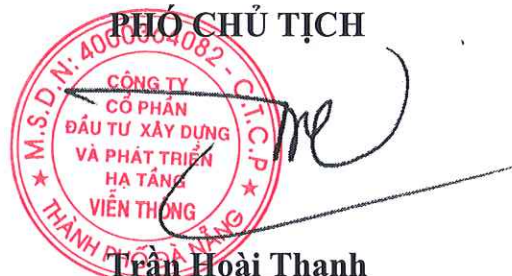 PHÓ CHỦ TỊCH
M.S.D.N: 4000364082 - C.T.C.P
CÔNG TY
CỔ PHẦN
ĐẦU TƯ XÂY DỰNG
VÀ PHÁT TRIỂN
HẠ TẦNG
VIỄN THÔNG
THÀNH PHỐ ĐÀ NẴNG
Trần Hoài Thanh